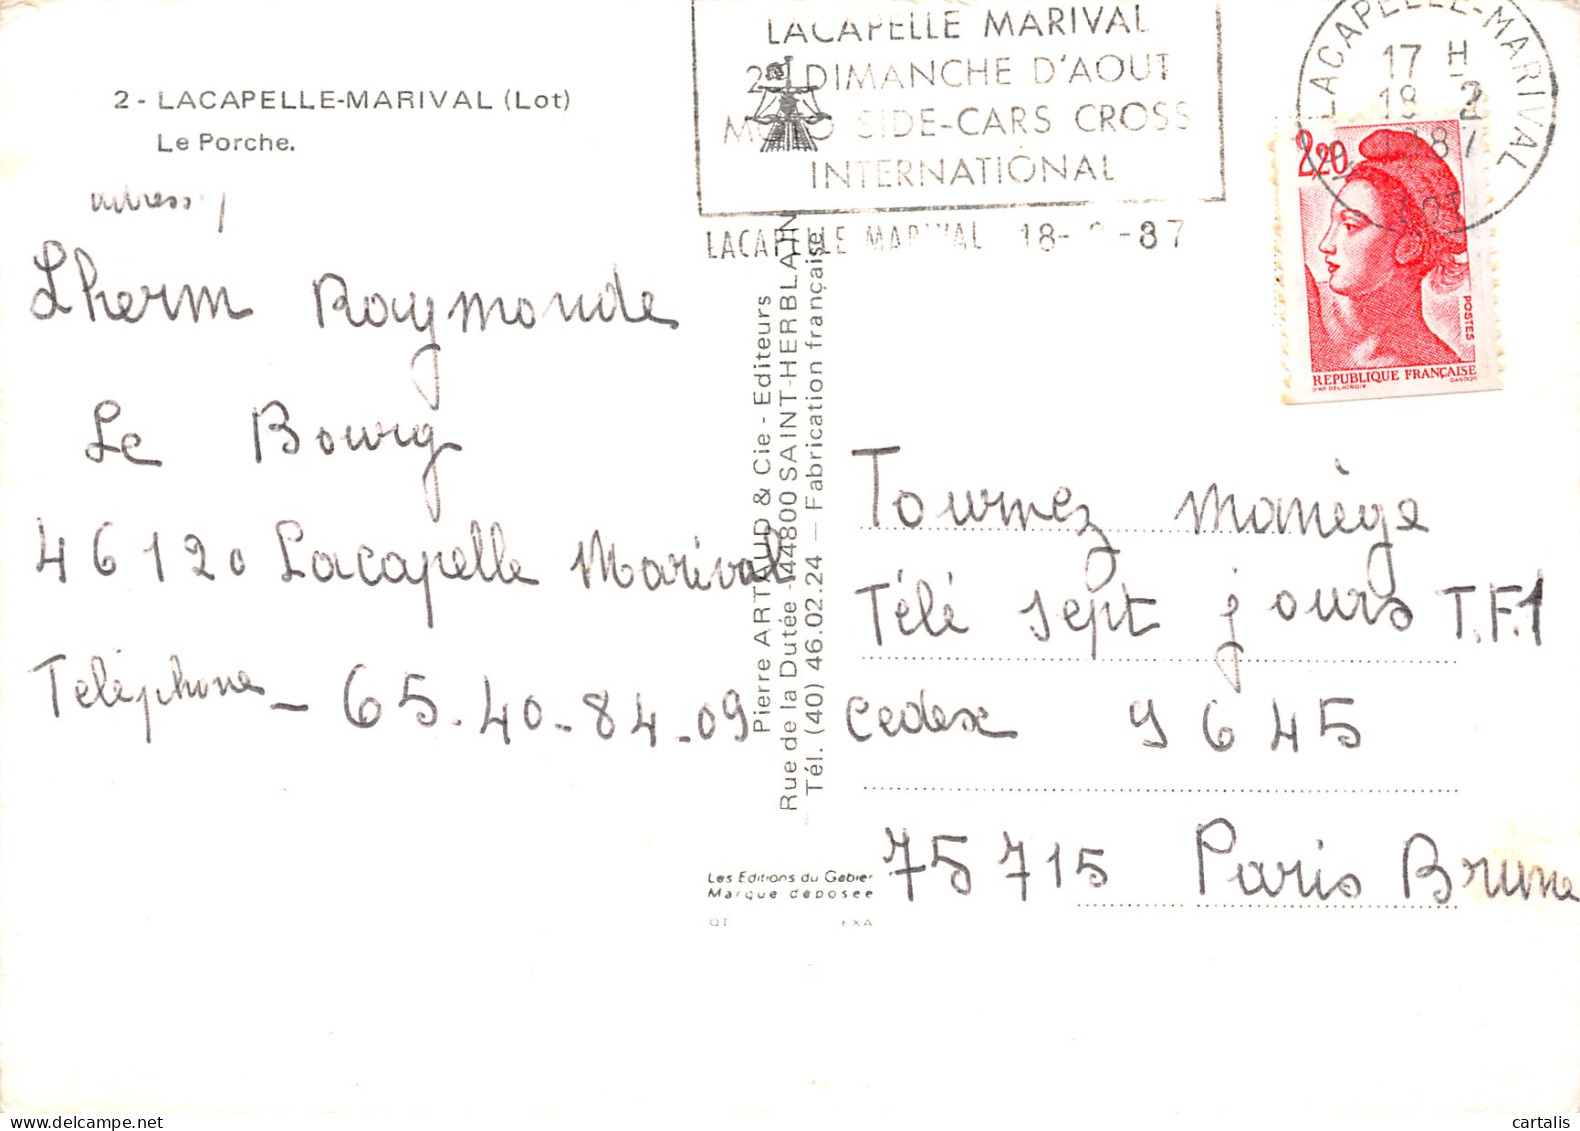 2 - LACAPELLE-MARIVAL (Lot)
Le Porche.
adresse
Lherm Raymonde
Le Bourg
46120 Lacapelle Marival
Téléphone - 65.40-84.09
LACAPELLE MARIVAL
2e DIMANCHE D'AOUT
MOTO SIDE-CARS CROSS
INTERNATIONAL
LACAPELLE MARIVAL 18- -87
LACAPELLE-MARIVAL
17 H
18 - 2
1987
LOT
2,20
POSTES
REPUBLIQUE FRANÇAISE
D'AP. DELACROIX GANDON
Pierre ARTAUD & Cie - Editeurs
Rue de la Dutée - 44800 SAINT-HERBLAIN
Tél. (40) 46.02.24 — Fabrication française
Tournez manège
Télé sept jours T.F.1
Cedex 9645
75715 Paris Brune
Les Editions du Gabier
Marque déposée
QT EXA
cartalis